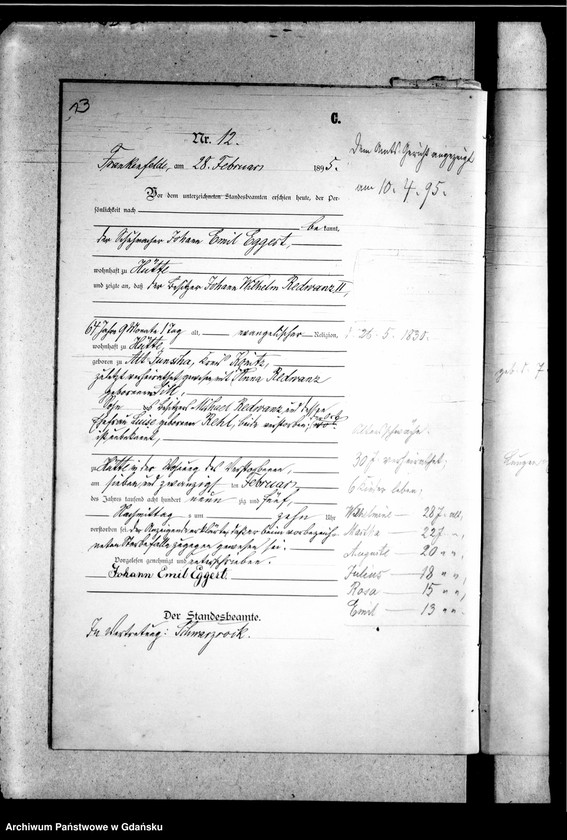 23
C.
Nr. 12.
Frankenfelde, am 28. Februar 1895.
Vor dem unterzeichneten Standesbeamten erschien heute, der Per-
sönlichkeit nach
bekannt,
der Schuhmacher Johann Emil Eggert,
wohnhaft zu Hütte
und zeigte an, daß der Besitzer Johann Wilhelm Redwanz II,
64 Jahre 9 Monate 1 Tag alt, evangelischer Religion,
wohnhaft zu Hütte,
geboren zu Alt, Kreis Konitz,
zuletzt verheirathet gewesen mit Anna Redwanz
geborenen
Sohn des Besitzers Michael Redwanz und dessen
Ehefrau Luise geborenen Rehl, beide verstorben,
ist unbekannt,
zu Hütte in der Wohnung des Verstorbenen,
am sieben und zwanzigsten Februar
des Jahres tausend acht hundert neunzig und fünf,
Nachmittag um zehn Uhr
verstorben sei. Der Anzeigende erklärte, daß er beim vorbezeich-
neten Sterbefalle zugegen gewesen sei.
Vorgelesen genehmigt und unterschrieben.
Johann Emil Eggert.
Der Standesbeamte.
In Vertretung: Schwarzrock.
Dem Amts-Gericht angezeigt
am 10. 4. 95.
26. 5. 1830.
Altersschwäche.
30 J verheirathet,
6 Kinder leben:
Wilhelmine — 28 J. alt,
Martha — 22 J. " ,
Auguste — 20 " " ,
Julius — 18 " " ,
Rosa — 15 " " ,
Emil — 13 " " .
geb. d. 7.
Lungen
Archiwum Państwowe w Gdańsku